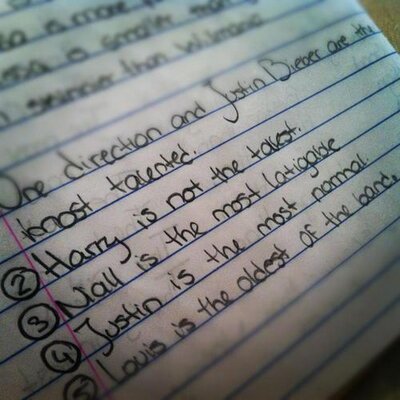 is more
is smaller
than
One direction and Justin Bieber are the
most talented.
② Harry is not the tallest.
③ Niall is the most latiggible
④ Justin is the most normal.
⑤ Louis is the oldest of the band.